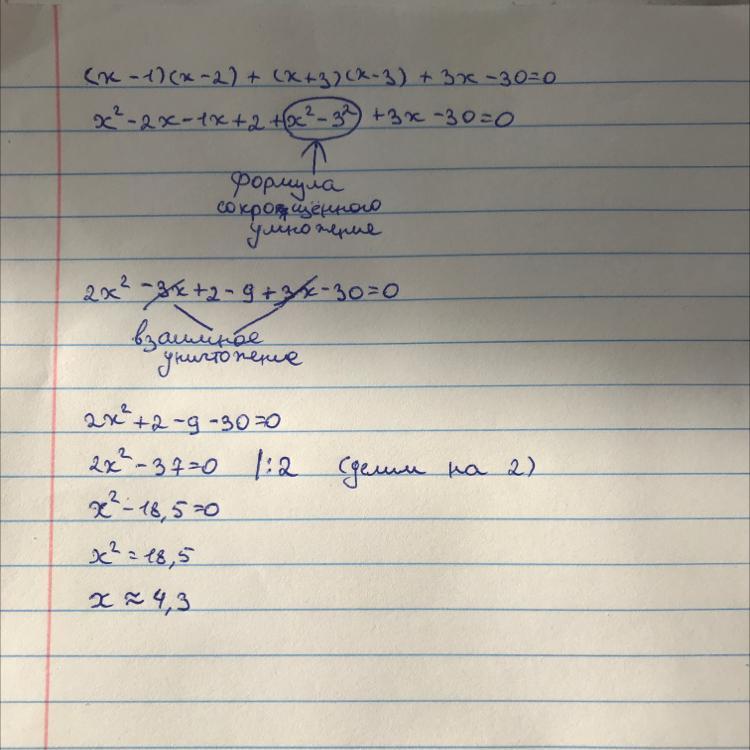 (x-1)(x-2) + (x+3)(x-3) + 3x-30=0
x²-2x-1x+2+x²-3² +3x-30=0
формула
сокращённого
умножение
2x² -3x+2-9+3x-30=0
взаимное
уничтожение
2x²+2-9-30=0
2x²-37=0 |:2 (делим на 2)
x²-18,5=0
x²=18,5
x≈4,3